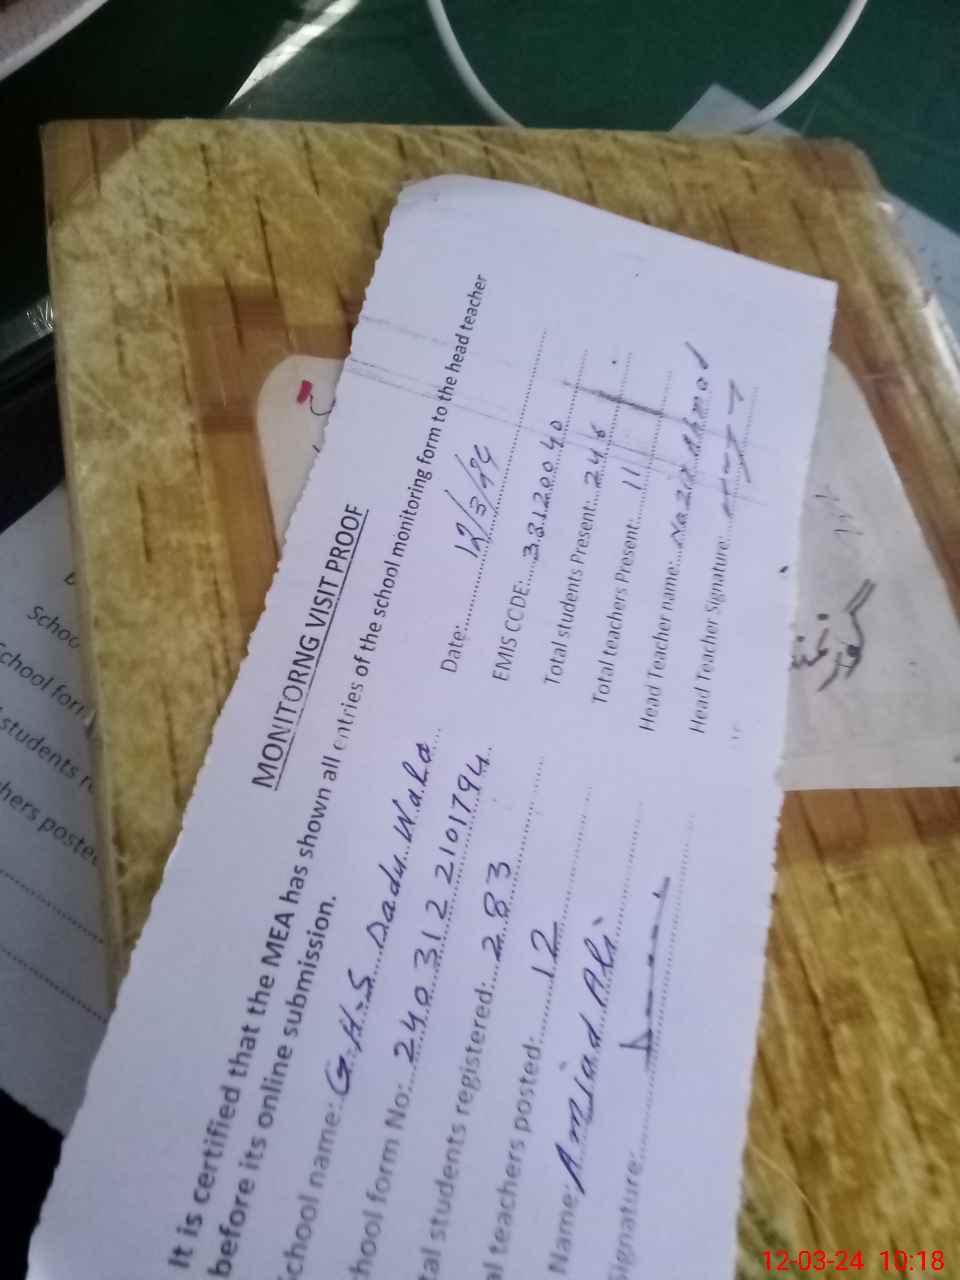 MONITORNG VISIT PROOF
It is certified that the MEA has shown all entries of the school monitoring form to the head teacher
before its online submission.
chool name: G.H.S Dadu Wala
Date:
12/3/24
hool form No: 240312 2101794
EMIS CCDE: 38120040
tal students registered: 283
Total students Present: 246
al teachers posted: 12
Total teachers Present: 11
Name: Amjad Ali
Head Teacher name:
Signature:
Head Teacher Signature:
Schoo
chool for
students r
hers poste
12-03-24 10:18